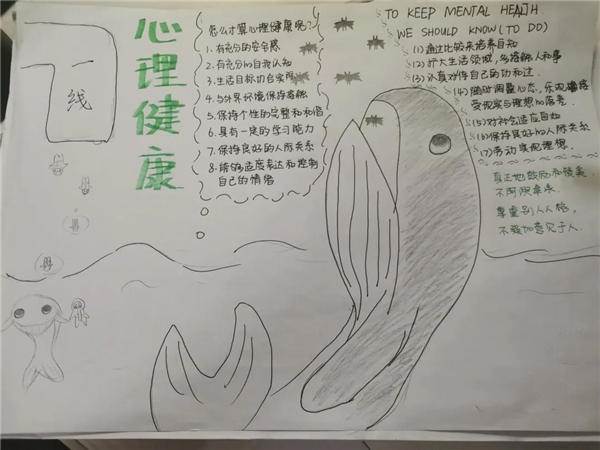 一线
心理健康
怎么才算心理健康呢?
1.有充分的安全感
2.有充分的自我认知
3.生活目标切合实际
4.与外界环境保持接触
5.保持个性的完整和和谐
6.具有一定的学习能力
7.保持良好的人际关系
8.能够适度表达和控制
自己的情绪
TO KEEP MENTAL HEALTH.
WE SHOULD KNOW(TO DO)
(1)通过比较来培养自知
(2)扩大生活领域,多接触人和事
(3)认真对待自己的功和过
(4)随时调整心态,乐观
受现实与理想的落差
(5)对社会适应自如
(6)保持良好的人际关系
(7)劳动实现理想.
真正地鼓励和赞美
不阿谀奉承
尊重别人人格,
不强加意见于人.